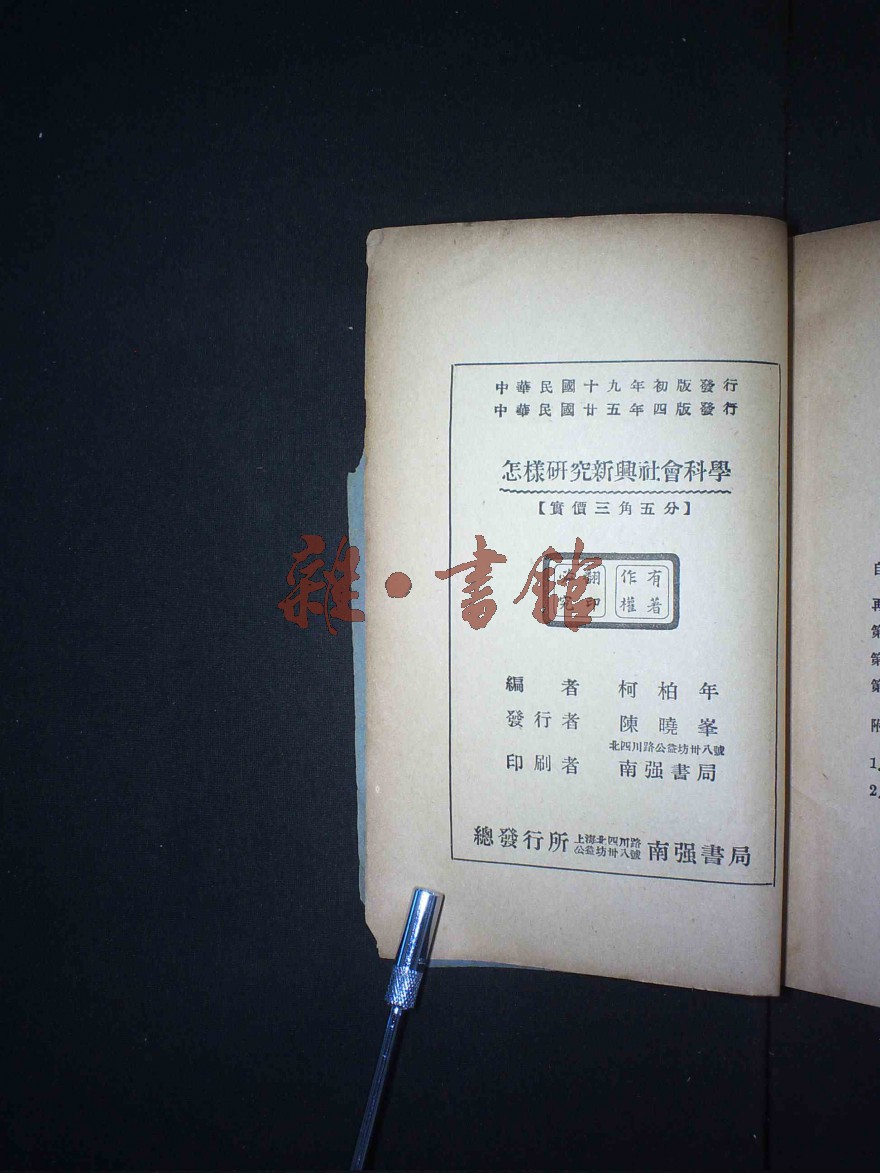 中華民國十九年初版發行
中華民國廿五年四版發行
怎樣研究新興社會科學
【實價三角五分】
有著作權
翻印必究
雜·書館
編者 柯柏年
發行者 陳曉峯
北四川路公益坊卅八號
印刷者 南强書局
總發行所 上海北四川路公益坊卅八號 南强書局
自
再
第
第
第
附
1.
2.